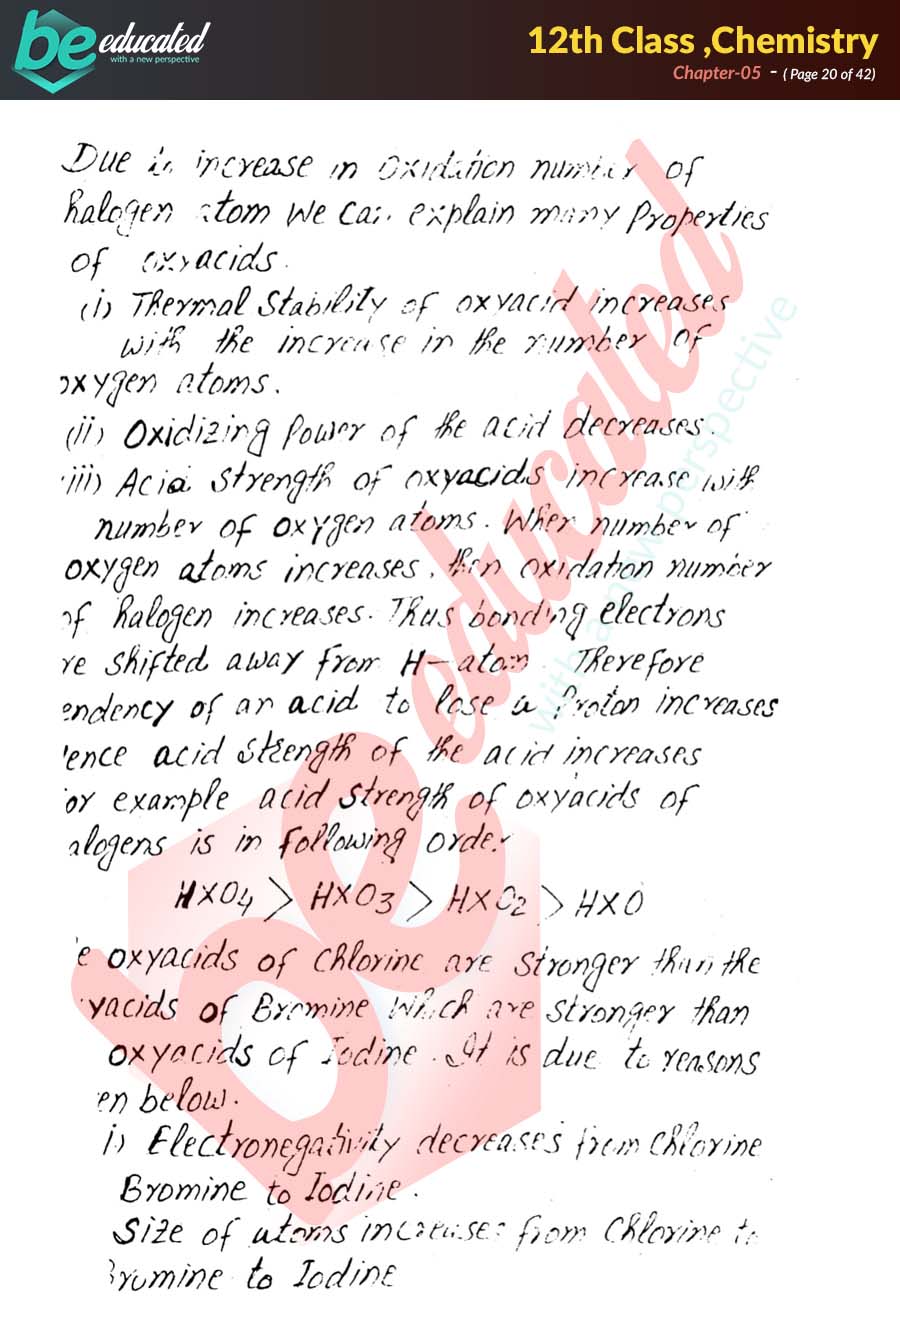 be educated
with a new perspective
12th Class ,Chemistry
Chapter-05 - ( Page 20 of 42)
Due to increase in oxidation number of
halogen atom we can explain many Properties
of oxyacids.
(i) Thermal Stability of oxyacid increases
with the increase in the number of
oxygen atoms.
(ii) Oxidizing Power of the acid decreases.
iii) Acid Strength of oxyacids increase with
number of oxygen atoms. When number of
oxygen atoms increases, then oxidation number
of halogen increases. Thus bonding electrons
re shifted away from H-atom. Therefore
endency of an acid to lose a Proton increases
ence acid strength of the acid increases
or example acid strength of oxyacids of
alogens is in following order
HXO4 > HXO3 > HXO2 > HXO
e oxyacids of Chlorine are stronger than the
yacids of Bromine which are stronger than
oxyacids of Iodine. It is due to reasons
en below.
i) Electronegativity decreases from Chlorine
Bromine to Iodine.
Size of atoms increases from Chlorine to
Bromine to Iodine
be educated
with a new perspective